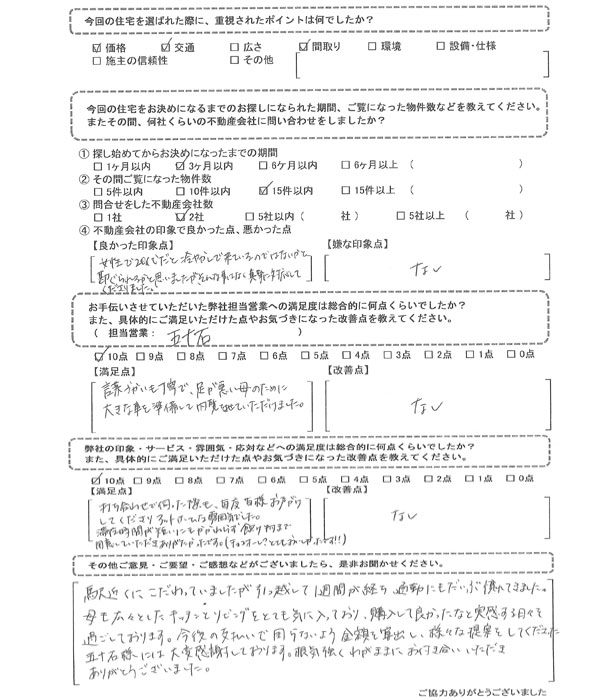 今回の住宅を選ばれた際に、重視されたポイントは何でしたか?
☑ 価格 ☑ 交通 □ 広さ ☑ 間取り □ 環境 □ 設備・仕様
□ 施主の信頼性 □ その他
今回の住宅をお決めになるまでのお探しになられた期間、ご覧になった物件数などを教えてください。
またその間、何社くらいの不動産会社に問い合わせをしましたか?
① 探し始めてからお決めになったまでの期間
□ 1ヶ月以内 ☑ 3ヶ月以内 □ 6ケ月以内 □ 6ヶ月以上 ( )
② その間ご覧になった物件数
□ 5件以内 □ 10件以内 ☑ 15件以内 □ 15件以上 ( )
③ 問合せをした不動産会社数
□ 1社 ☑ 2社 □ 5社以内 ( 社 ) □ 5社以上 ( 社 )
④ 不動産会社の印象で良かった点、悪かった点
【良かった印象点】 【嫌な印象点】
女性で20代だと冷やかしで来ているのではないかと
思いましたがそんな事はなく真摯に対応して
くださりました。
なし
お手伝いさせていただいた弊社担当営業への満足度は総合的に何点くらいでしたか?
また、具体的にご満足いただけた点やお気づきになった改善点を教えてください。
( 担当営業: 五十石 )
☑ 10点 □ 9点 □ 8点 □ 7点 □ 6点 □ 5点 □ 4点 □ 3点 □ 2点 □ 1点 □ 0点
【満足点】 【改善点】
言葉づかいも丁寧で、足が悪い母のために
大きな車を準備して内覧させていただけました。
なし
弊社の印象・サービス・雰囲気・応対などへの満足度は総合的に何点くらいでしたか?
また、具体的にご満足いただけた点やお気づきになった改善点を教えてください。
☑ 10点 □ 9点 □ 8点 □ 7点 □ 6点 □ 5点 □ 4点 □ 3点 □ 2点 □ 1点 □ 0点
【満足点】 【改善点】
打ち合わせで伺った際も、毎度皆様お声がけ
してくださりアットホームな雰囲気でした。
滞在時間が短いにもかかわらず飲み物まで
用意していただきありがたかったです。
なし
その他ご意見・ご要望・ご感想などがございましたら、是非お聞かせください。
駅近くにこだわっていましたが引っ越して1週間が経ち通勤にもだいぶ慣れてきました。
母も広々としたキッチンとリビングをとても気に入っており、購入して良かったなと実感する日々を
過ごしております。今後の支払いで困らないよう金額を算出し、様々な提案をしてくださった
五十石様には大変感謝しております。根気強くわがままにお付き合いいただき
ありがとうございました。
ご協力ありがとうございました